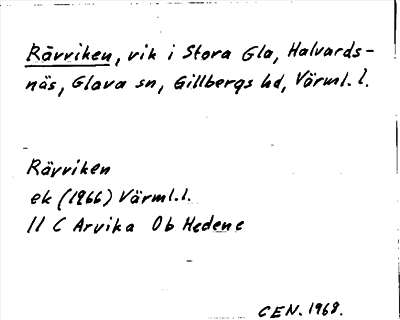 Rävviken, vik i Stora Gla, Halvards-
näs, Glava sn, Gillbergs hd, Värml. l.
Rävviken
ek (1966) Värml. l.
11 C Arvika 0b Hedene
CEN. 1968.